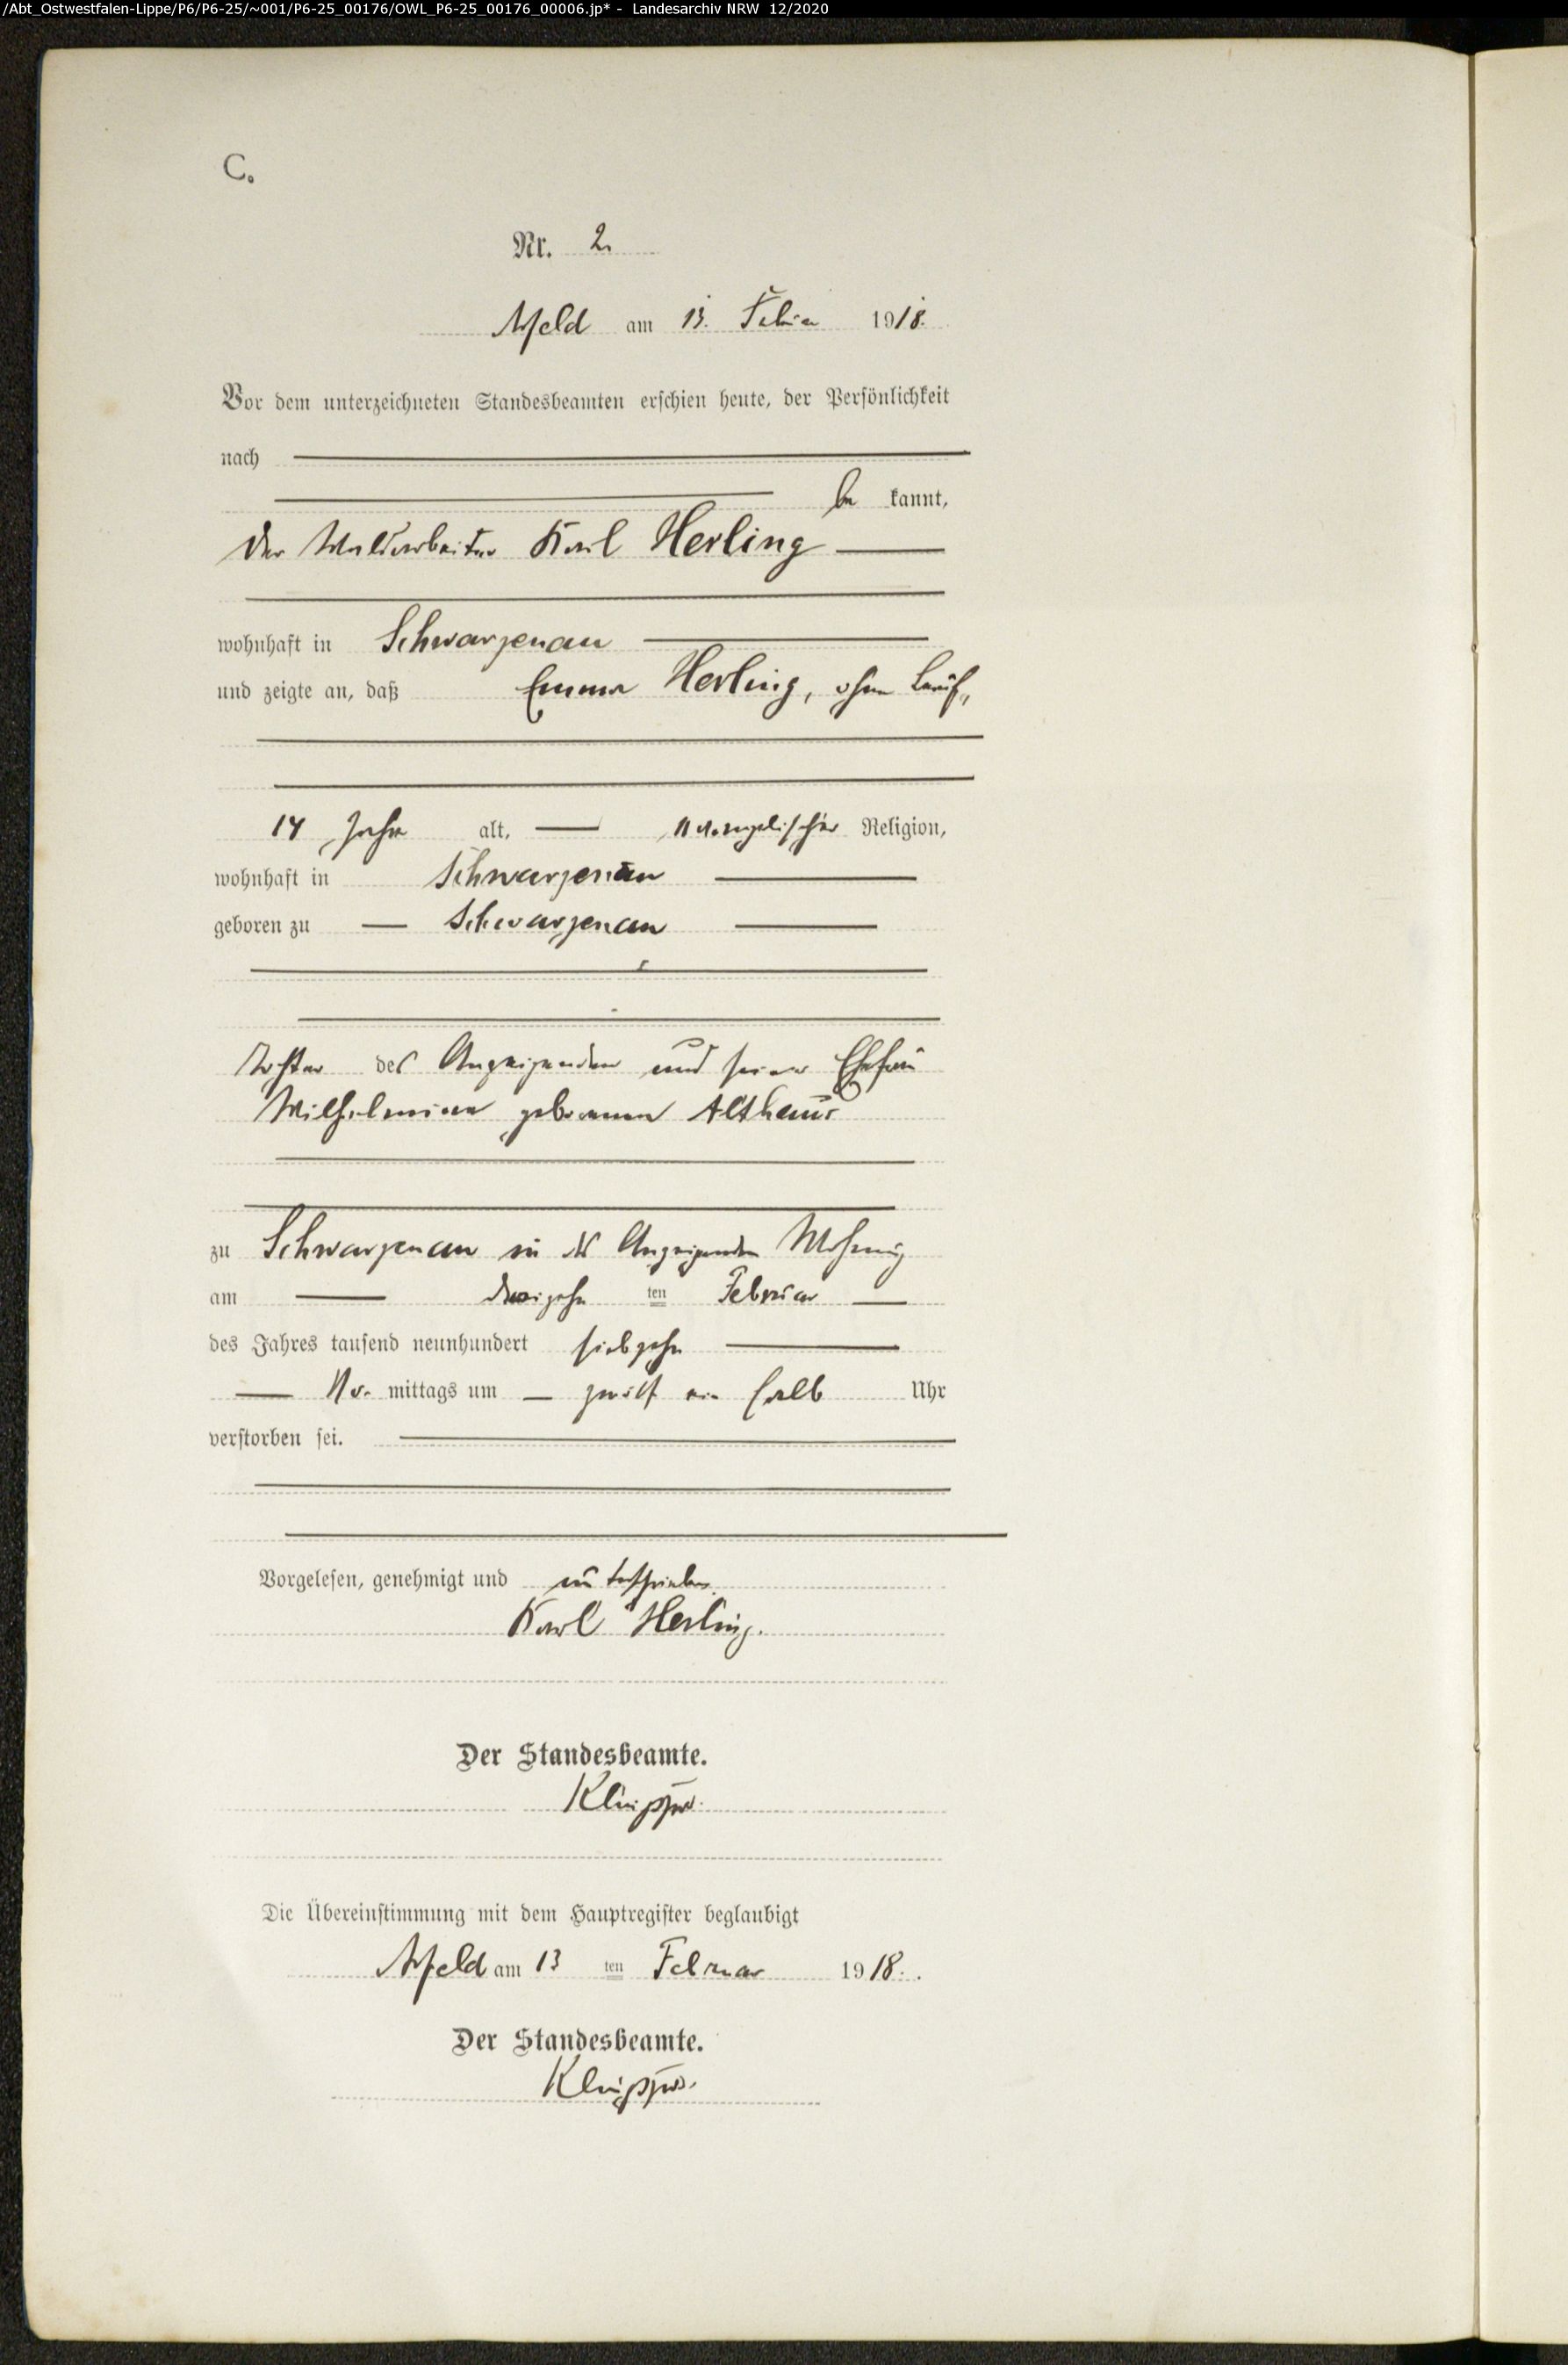 /Abt_Ostwestfalen-Lippe/P6/P6-25/~001/P6-25_00176/OWL_P6-25_00176_00006.jp* - Landesarchiv NRW 12/2020
C.
Nr. 2.
Arfeld am 13. Februar 1918.
Vor dem unterzeichneten Standesbeamten erschien heute, der Persönlichkeit
nach
be kannt,
der Waldarbeiter Karl Herling
wohnhaft in Schwarzenau
und zeigte an, daß Emma Herling, ohne Beruf,
14 Jahre alt, evangelischer Religion,
wohnhaft in Schwarzenau
geboren zu Schwarzenau
Tochter des Anzeigenden und seiner Ehefrau
Wilhelmine geborenen Althaus
zu Schwarzenau in des Anzeigenden Wohnung
am dreizehn ten Februar
des Jahres tausend neunhundert siebzehn
Vor mittags um zwölf ein halb Uhr
verstorben sei.
Vorgelesen, genehmigt und unterschrieben.
Karl Herling.
Der Standesbeamte.
Die Übereinstimmung mit dem Hauptregister beglaubigt
Arfeld am 13 ten Februar 1918.
Der Standesbeamte.